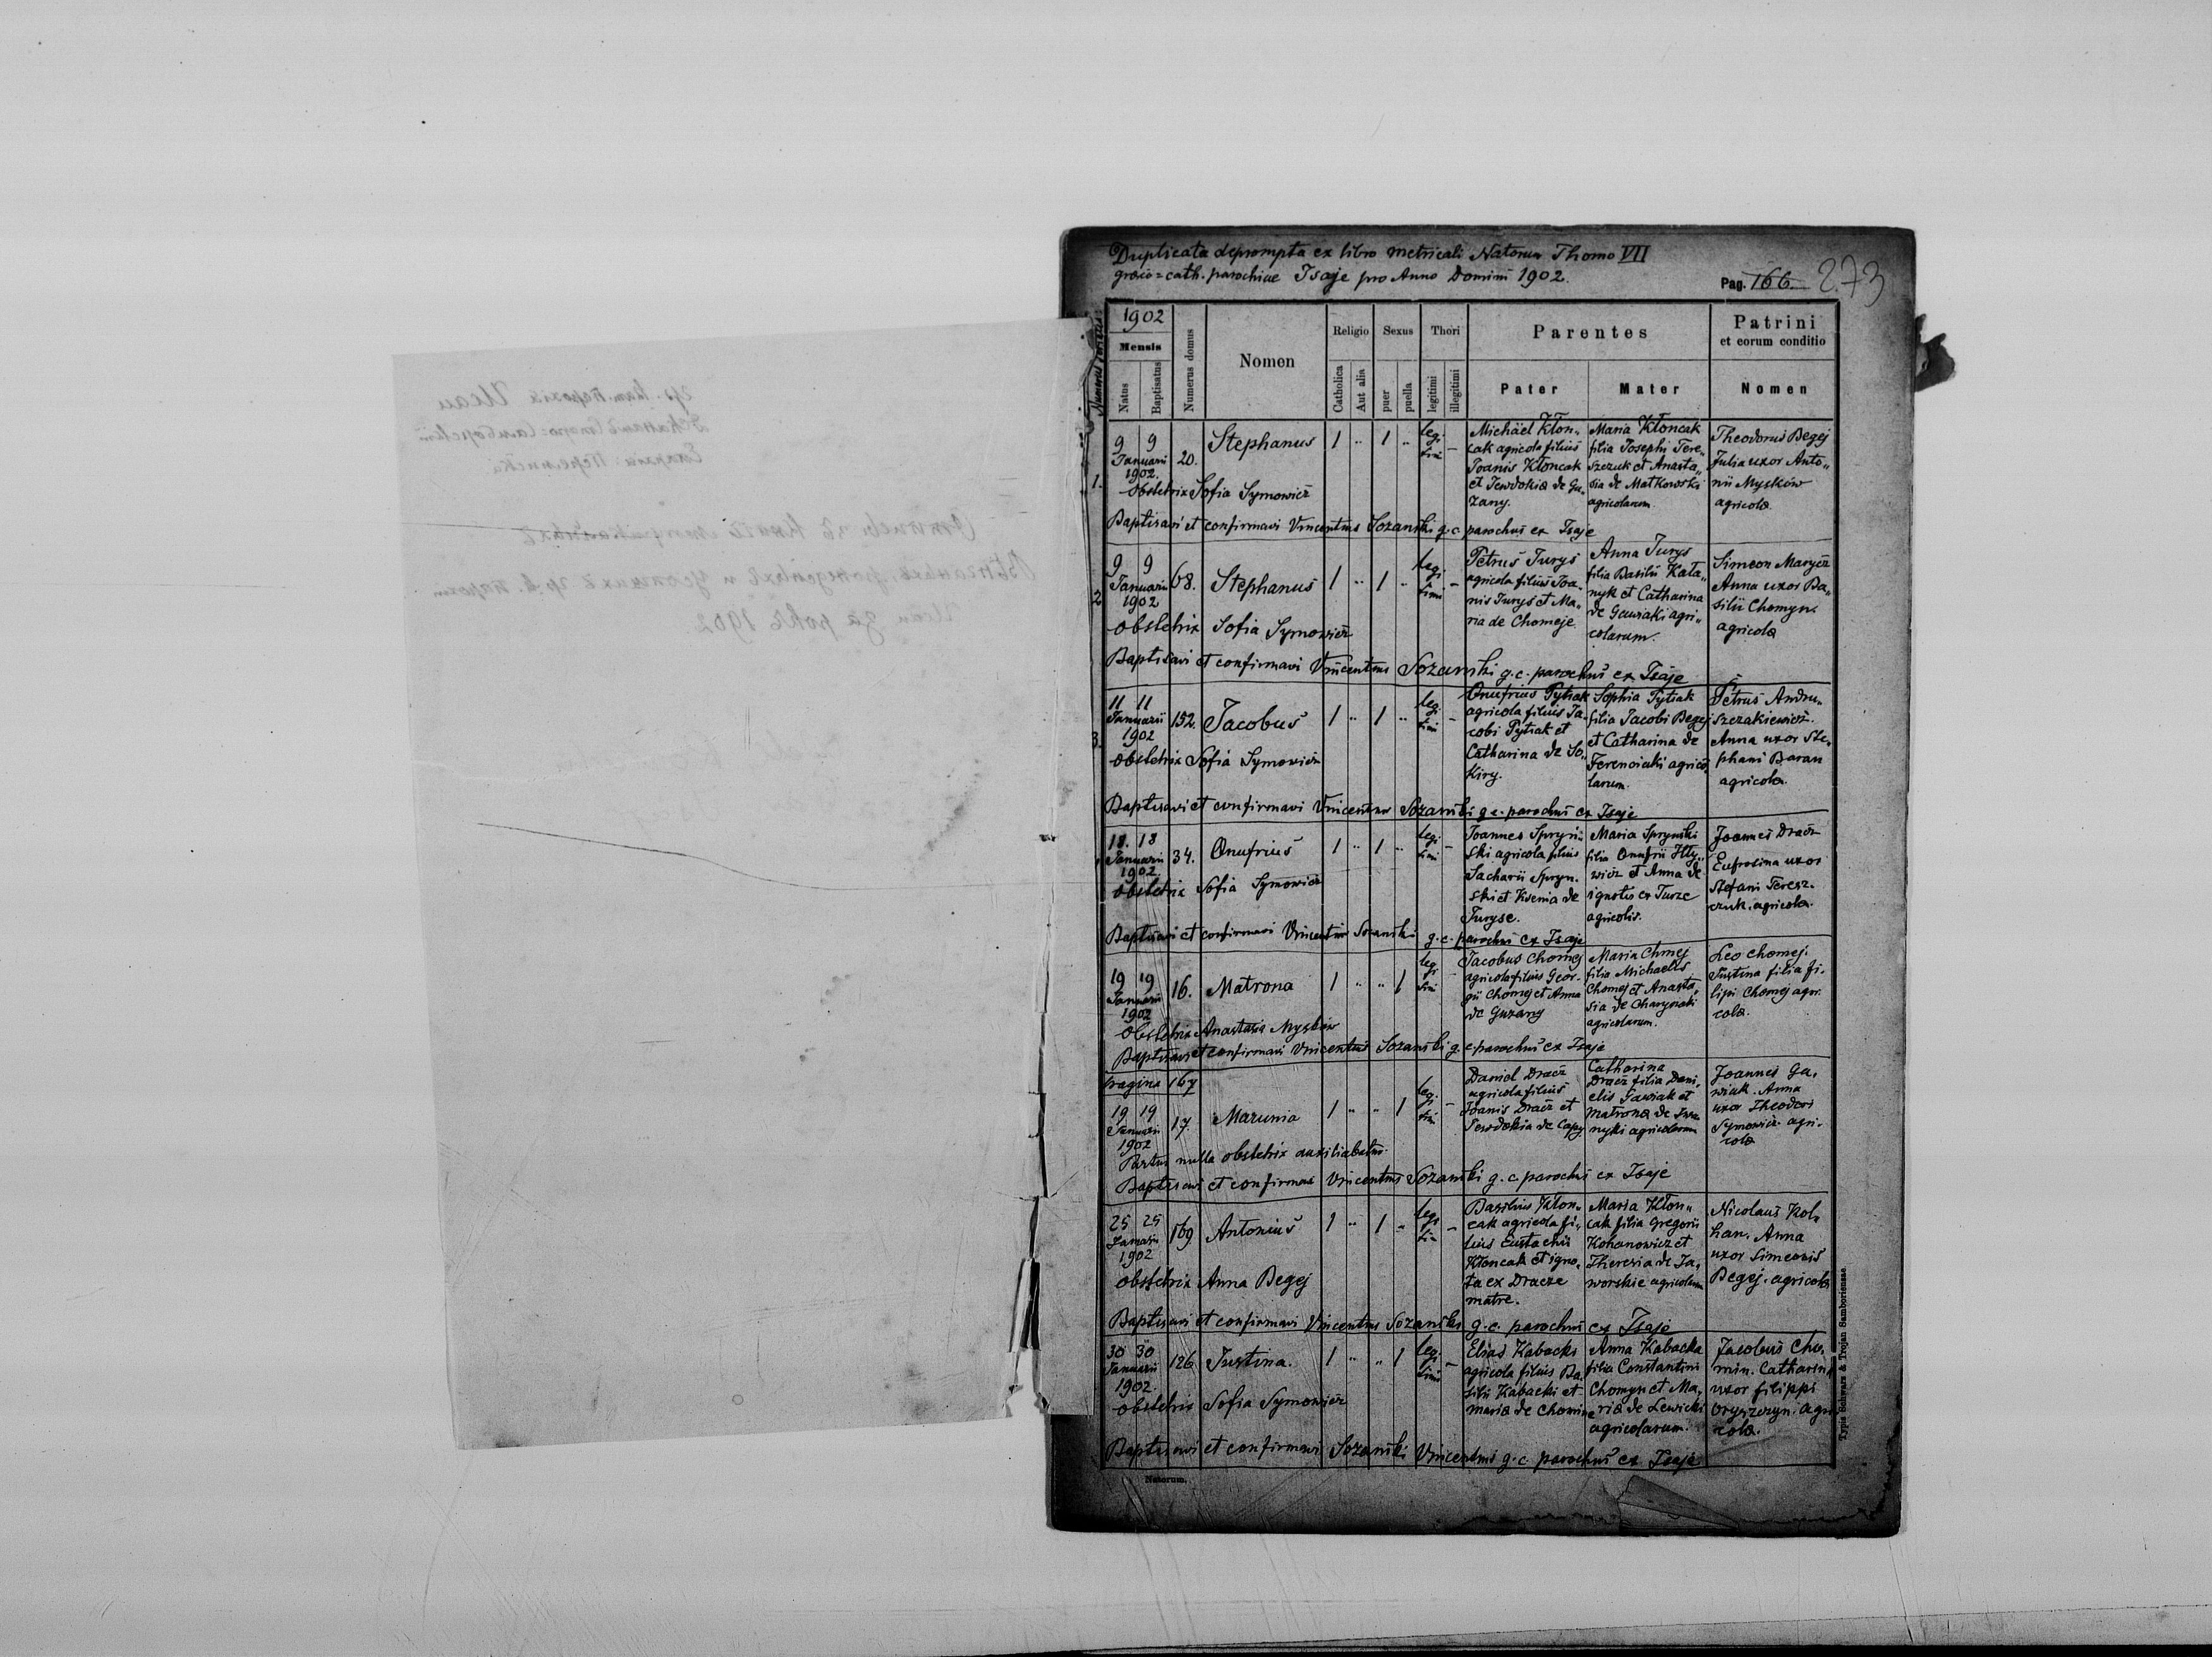 Duplicata deprompta ex libro metricali Natorum Thomo VII
graeco=cath. parochiae Isaje pro Anno Domini 1902.
Pag. 166. 273
1902
Mensis
Natus
Baptisatus
Numerus domus
Nomen
Religio
Catholica
Aut alia
Sexus
puer
puella
Thori
legitimi
illegitimi
Parentes
Pater
Mater
Patrini
et eorum conditio
Nomen
1.
9 9
Januarii
1902.
20.
Stephanus
1 " 1 "
legi
timi –
Michäel Kłon„
cak agricola filius
Joanis Kłoncak
et Jewdokia de Gu„
zany.
Maria Kłoncak
filia Josephi Tere„
szczuk et Anasta„
sia de Matkowski
agricolarum
Theodorus Begej
Julia uxor Anto„
nii Mysków
agricola
Obstetrix Sofia Symowicz
Baptisavi et confirmavi Vincentius Sozanski g. c. parochus ex Isaje
2
9 9
Januarii
1902
68.
Stephanus
1 " 1 "
legi
timi –
Petrus Jurys
agricola filius Joa„
nis Jurys et Ma„
ria de Chomeje.
Anna Jurys
filia Basilii Kata„
nyk et Catharina
de Gawiaki agri„
colarum.
Simeon Marycz
Anna uxor Ba„
silii Chomyn
agricola
obstetrix Sofia Symowicz
Baptisavi et confirmavi Vincentius Sozanski g. c. parochus ex Isaje
3.
11 11
Januarii
1902
152.
Jacobus
1 " 1 "
legi
timi –
Onufrius Pytiak
agricola filius Ja„
cobi Pytiak et
Catharina de So„
kiry.
Sophia Pytiak
filia Jacobi Begej
et Catharina de
Ferenciaki agrico„
larum.
Petrus Andru„
szczakiewicz.
Anna uxor Ste„
phani Baran
agricola.
obstetrix Sofia Symowicz
Baptisavi et confirmavi Vincentius Sozanski g c. parochus ex Isaje
18. 18
Januarii
1902
34.
Onufrius
1 " 1 "
legi
timi –
Joannes Spryn„
ski agricola filius
Sacharii Spryn.
ski et Ksenia de
Juryse.
Maria Sprynski
filia Onufrii
wicz et Anna de
ignotis ex Turze
agricolis.
Joannes Dracz
Eufrosina uxor
Stefani Teresz.
czuk. agricola.
obstetrix Sofia Symowicz
Baptisavi et confirmavi Vincentius Sozanski g. c. parochus ex Isaje
19 19
Januarii
1902
16.
Matrona
1 " " 1
legi
timi –
Jacobus Chomej
agricola filius Geor.
gii Chomej et Anna
de Guzany
Maria Chmej
filia Michaelis
Chomej et Anasta„
sia de
agricolarum.
Leo Chomej.
Justina filia fi.
lipi Chomej agri.
cola.
Obstetrix Anastasia Mysków
Baptisavi et confirmavi Vincentius Sozanski g. c. parochus ex Isaje
pagina 167
19 19
Januarii
1902
17.
Marunia
1 " " 1
legi
timi –
Daniel Dracz
agricola filius
Joanis Dracz et
Jewdokia de Capy
Catharina
Dracz filia Dani„
elis Gawiak et
Matrona de
nyki agricolarum
Joannes Ga„
wiak. Anna
uxor Theodori
Symowicz. agri.
cola
Partus nulla obstetrix auxiliabatur.
Baptisavi et confirmavi Vincentius Sozanski g. c parochus ex Isaje
25 25
Januarii
1902
169
Antonius
1 " 1 "
legi
tim –
Basilius Kłon„
cak agricola fi„
lius Eustachii
Kłoncak et igno„
ta ex Dracze
matre.
Maria Kłon„
cak filia Gregorii
Kohanowicz et
Theresia de Ja„
worskie agricolarum
Nicolaus Koł„
han. Anna
uxor Simeonis
Begej. agricola
obstetrix Anna Begej
Baptisavi et confirmavi Vincentius Sozanski g. c. parochus ex Isaje
30 30
Januarii
1902.
126
Justina.
1 " " 1
legi
timi –
Elias Kabacki
agricola filius Ba„
silii Kabacki et
maria de Chomin
Anna Kabacka
filia Constantini
Chomyn et Ma„
ria de Lewicki
agricolarum.
Jacobus Cho„
min. Catharina
uxor filippi
Oryszczyn. agri
cola.
obstetrix Sofia Symowicz
Baptisavi et confirmavi Sozanski Vincentius g. c. parochus ex Isaje
Natorum.
Typis Schwarz & Trojan Samboriensae